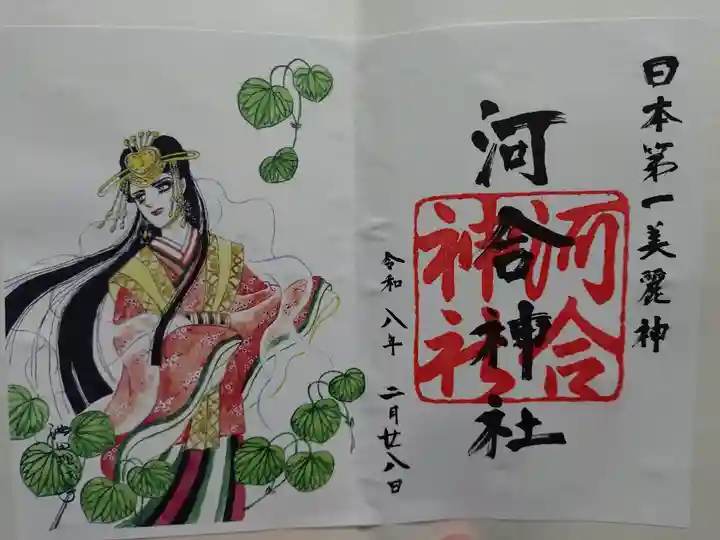 日本第一美麗神
河合神社
河合
神社
令和八年 二月廿八日